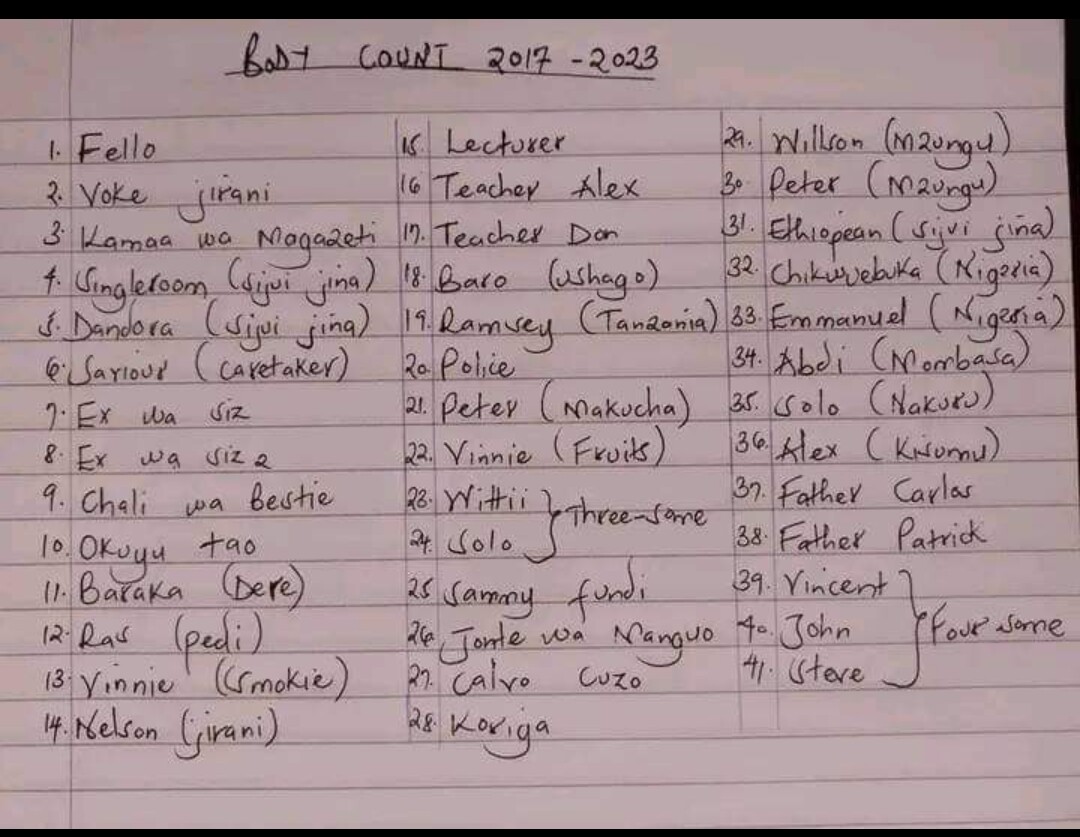 BODY COUNT 2017 - 2023
1. Fello
2. Voke jirani
3. Kamaa wa Magazeti
4. Singleroom (sijui jina)
5. Dandora (sijui jina)
6. Sariour (caretaker)
7. Ex wa siz
8. Ex wa siz 2
9. Chali wa Bestie
10. Okuyu tao
11. Baraka (Dere)
12. Ras (pedi)
13. Vinnie (Smokie)
14. Nelson (jirani)
15. Lecturer
16 Teacher Alex
17. Teacher Dan
18. Baro (ushago)
19. Ramsey (Tanzania)
20. Police
21. Peter (Makucha)
22. Vinnie (Fruits)
23. Wittii
24. Solo
Three-some
25 Sammy fundi
26. Jonte wa Manguo
27. Calvo Cuzo
28. Koriga
29. Willson (Mzungu)
30. Peter (Mzungu)
31. Ethiopean (sijui jina)
32. Chikuvebuka (Nigeria)
33. Emmanuel (Nigeria)
34. Abdi (Mombasa)
35. Solo (Nakuru)
36. Alex (Kisumu)
37. Father Carlos
38. Father Patrick
39. Vincent
40. John
41. Steve
Four some